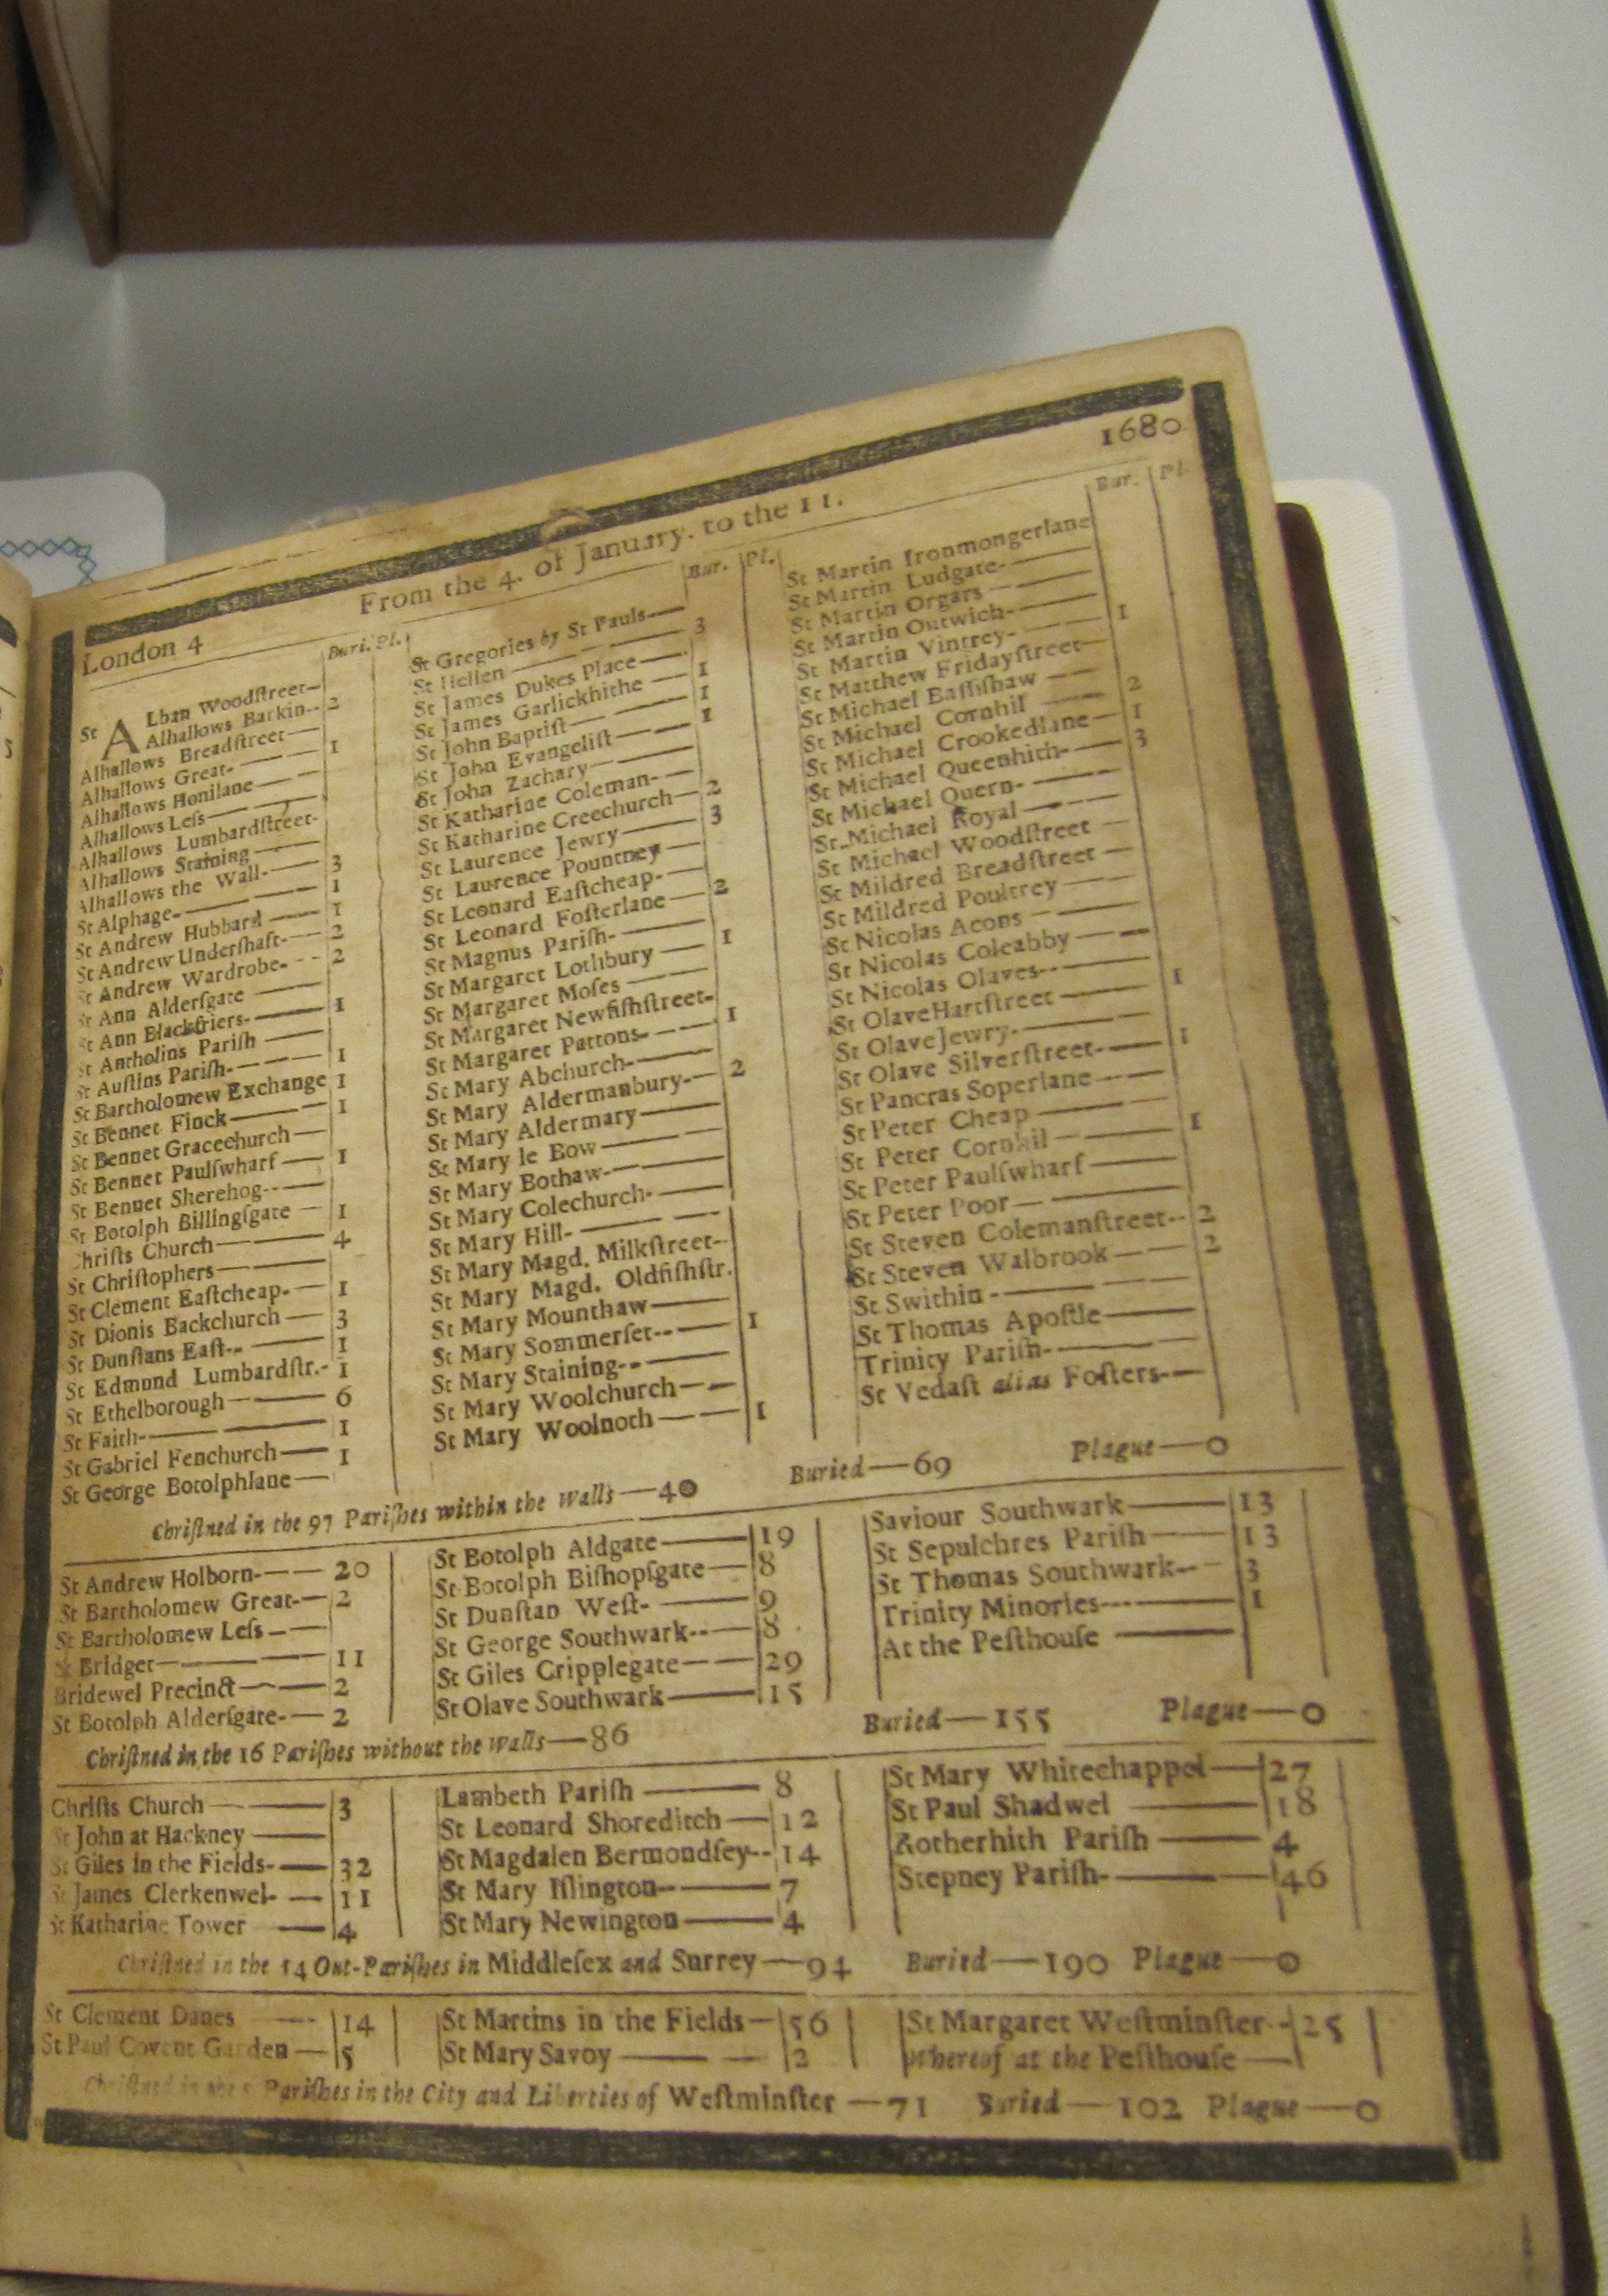 1680
London 4 From the 4. of January. to the 11.
Buri. Pl.
St ALban Woodſtreet—
Alhallows Barkin-- 2
Alhallows Breadſtreet—
Alhallows Great- — 1
Alhallows Honilane —
Alhallows Leſs —
Alhallows Lumbardſtreet-
Alhallows Staining —
Alhallows the Wall- — 3
St Alphage- — 1
St Andrew Hubbard — 1
St Andrew Underſhaft- — 2
St Andrew Wardrobe- -- 2
St Ann Alderſgate —
St Ann Blackfriers- — 1
St Antholins Pariſh —
St Auſtins Pariſh- — 1
St Bartholomew Exchange 1
St Bennet Finck — 1
St Bennet Gracechurch —
St Bennet Paulſwharf — 1
St Bennet Sherehog-- —
St Botolph Billingſgate — 1
Chriſts Church — 4
St Chriſtophers —
St Clement Eaſtcheap- — 1
St Dionis Backchurch — 3
St Dunſtans Eaſt-- — 1
St Edmund Lumbardſtr.- 1
St Ethelborough — 6
St Faith- — 1
St Gabriel Fenchurch — 1
St George Botolphlane —
Bur. Pl.
St Gregories by St Pauls—
St Hellen — 3
St James Dukes Place —
St James Garlickhithe — 1
St John Baptiſt — 1
St John Evangeliſt — 1
St John Zachary —
St Katharine Coleman- —
St Katharine Creechurch — 2
St Laurence Jewry — 3
St Laurence Pountney —
St Leonard Eaſtcheap- —
St Leonard Foſterlane — 2
St Magnus Pariſh- —
St Margaret Lothbury — 1
St Margaret Moſes —
St Margaret Newfiſhſtreet-
St Margaret Pattons- — 1
St Mary Abchurch- —
St Mary Aldermanbury- — 2
St Mary Aldermary —
St Mary le Bow —
St Mary Bothaw- —
St Mary Colechurch- —
St Mary Hill- —
St Mary Magd. Milkſtreet--
St Mary Magd. Oldfiſhſtr.
St Mary Mounthaw —
St Mary Sommerſet-- — 1
St Mary Staining-- —
St Mary Woolchurch —
St Mary Woolnoth — 1
Bur. Pl.
St Martin Ironmongerlane
St Martin Ludgate- —
St Martin Orgars —
St Martin Outwich- —
St Martin Vintrey- — 1
St Matthew Fridayſtreet—
St Michael Baſſiſhaw —
St Michael Cornhil — 2
St Michael Crookedlane — 1
St Michael Queenhith- — 3
St Michael Quern- —
St Michael Royal —
St Michael Woodſtreet —
St Mildred Breadſtreet —
St Mildred Poultrey —
St Nicolas Acons —
St Nicolas Coleabby —
St Nicolas Olaves-- —
St Olave Hartſtreet — 1
St Olave Jewry- —
St Olave Silverſtreet- — 1
St Pancras Soperlane —
St Peter Cheap —
St Peter Cornhil — 1
St Peter Paulſwharf —
St Peter Poor —
St Steven Colemanſtreet-- 2
St Steven Walbrook — 2
St Swithin - —
St Thomas Apoſtle —
Trinity Pariſh- —
St Vedaſt alias Foſters- —
Chriſtned in the 97 Pariſhes within the Walls — 40 Buried — 69 Plague — 0
St Andrew Holborn- — 20
St Bartholomew Great- — 2
St Bartholomew Leſs —
St Bridget — 11
Bridewel Precinct — 2
St Botolph Alderſgate- — 2
St Botolph Aldgate — 19
St Botolph Biſhopſgate — 8
St Dunſtan Weſt- — 9
St George Southwark-- — 8
St Giles Cripplegate — 29
St Olave Southwark — 15
Saviour Southwark — 13
St Sepulchres Pariſh — 13
St Thomas Southwark-- 3
Trinity Minories — 1
At the Peſthouſe —
Chriſtned in the 16 Pariſhes without the Walls — 86 Buried — 155 Plague — 0
Chriſts Church — 3
St John at Hackney —
St Giles in the Fields- — 32
St James Clerkenwel- — 11
St Katharine Tower — 4
Lambeth Pariſh — 8
St Leonard Shoreditch — 12
St Magdalen Bermondſey-- 14
St Mary Iſlington-- — 7
St Mary Newington — 4
St Mary Whitechappel — 27
St Paul Shadwel — 18
Rotherhith Pariſh — 4
Stepney Pariſh- — 46
Chriſtned in the 14 Out-Pariſhes in Middleſex and Surrey — 94 Buried — 190 Plague — 0
St Clement Danes — 14
St Paul Covent Garden — 5
St Martins in the Fields — 56
St Mary Savoy — 2
St Margaret Weſtminſter - 25
Whereof at the Peſthouſe —
Chriſtned in the 5 Pariſhes in the City and Liberties of Weſtminſter — 71 Buried — 102 Plague — 0